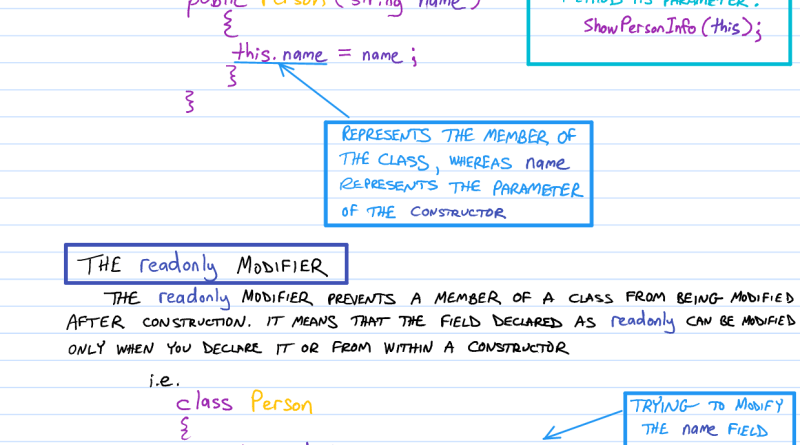 public Person (string name)
METHOD AS PARAMETER.
{
ShowPersonInfo(this);
this.name = name;
}
}
REPRESENTS THE MEMBER OF
THE CLASS, WHEREAS name
REPRESENTS THE PARAMETER
OF THE CONSTRUCTOR
THE readonly MODIFIER
THE readonly MODIFIER PREVENTS A MEMBER OF A CLASS FROM BEING MODIFIED
AFTER CONSTRUCTION. IT MEANS THAT THE FIELD DECLARED AS readonly CAN BE MODIFIED
ONLY WHEN YOU DECLARE IT OR FROM WITHIN A CONSTRUCTOR
i.e.
class Person
{
TRYING TO MODIFY
THE name FIELD